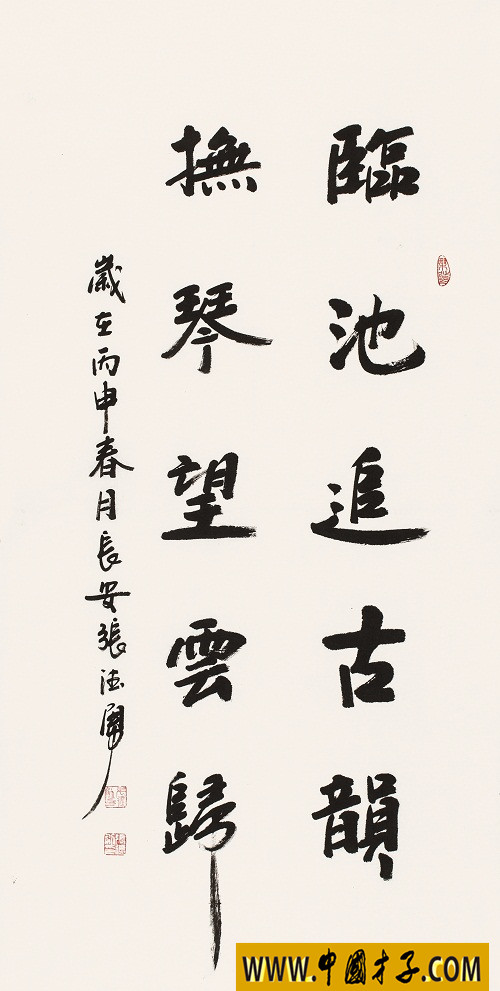 臨池追古韻
撫琴望雲歸
歲在丙申春月長安張法
www.中國才子.COM